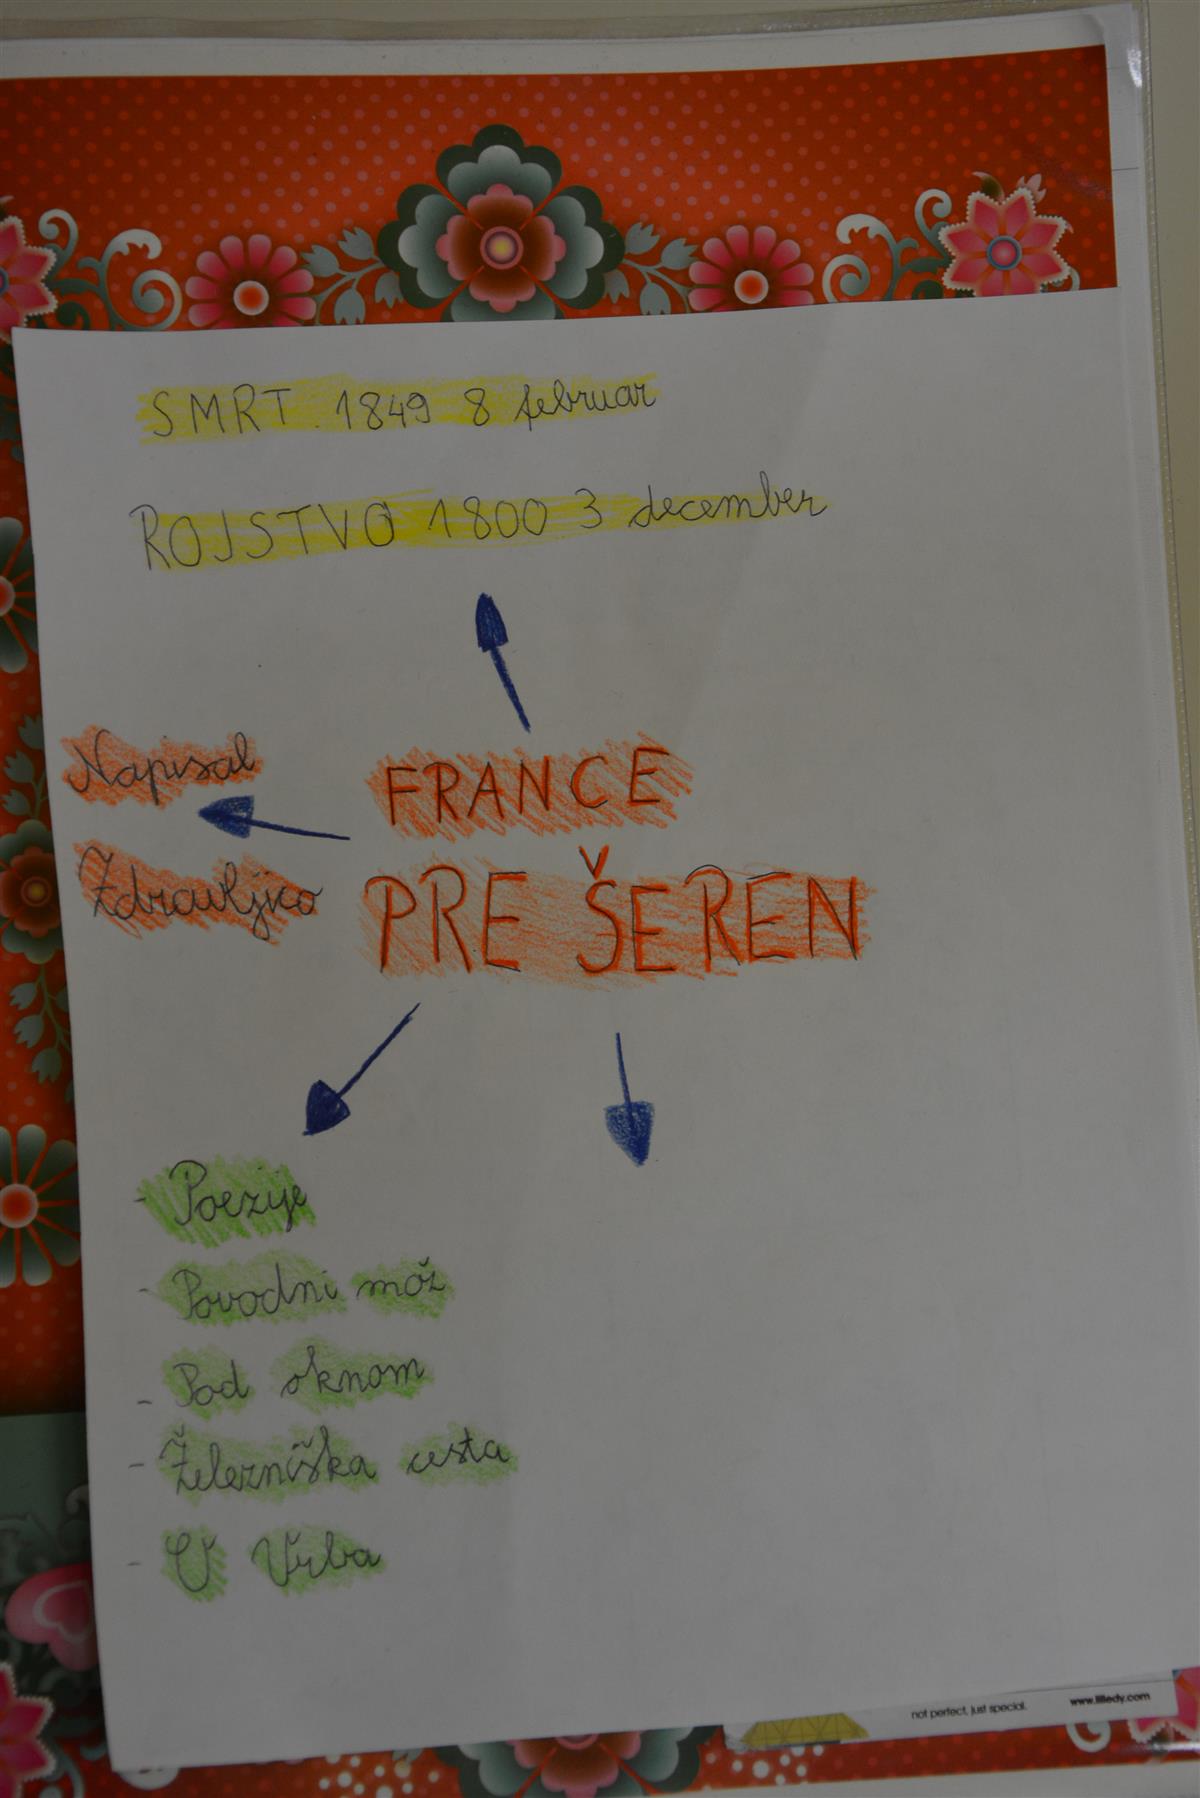 SMRT. 1849 8 februar
ROJSTVO 1800 3 december
Napisal
Zdravljico
FRANCE
PREŠEREN
- Poezije
- Povodni mož
- Pod oknom
- Železniška cesta
- O Vrba
not perfect, just special.
www.lilledy.com